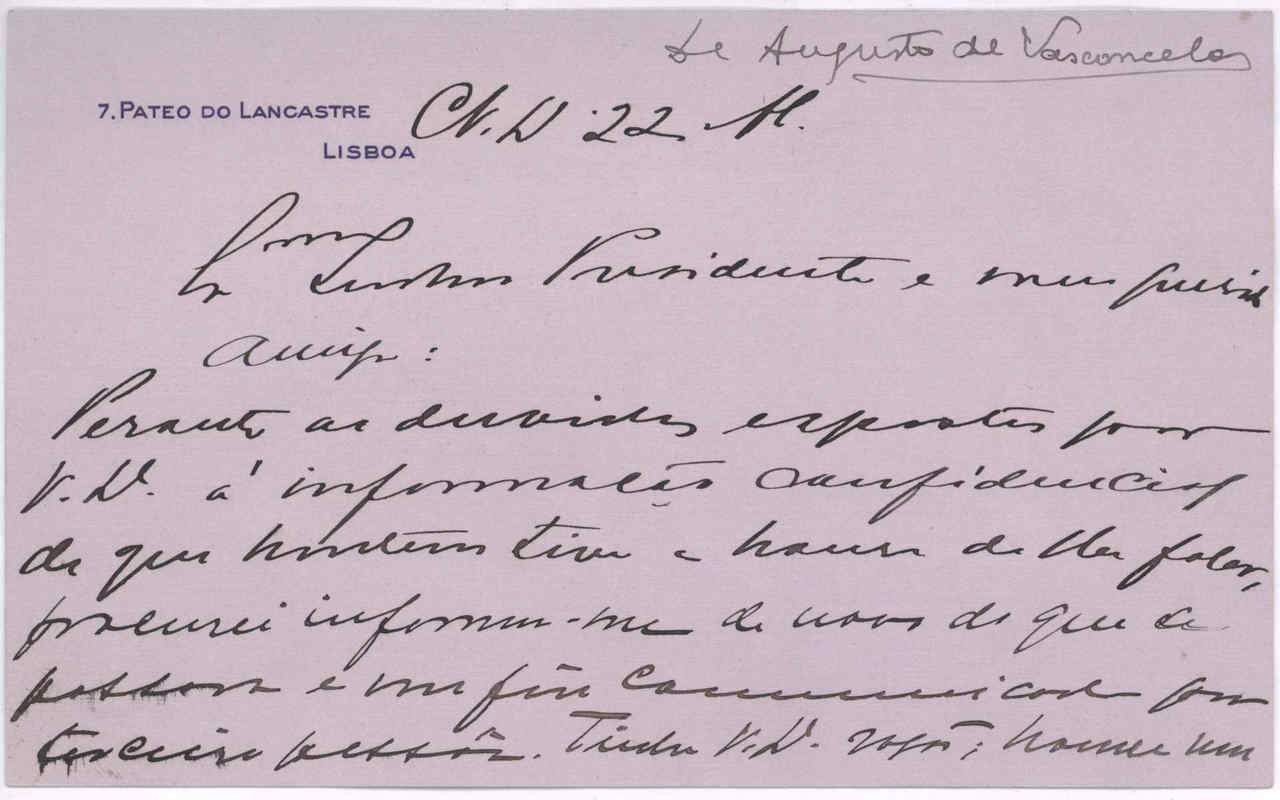 De Augusto de Vasconcelos
7. PATEO DO LANCASTRE
LISBOA
22
Senhor Presidente e meu querido
amigo:
Perante as duvidas expostas por
V. á informação confidencial
de que hontem tive a honra de lhe falar,
procurei informar-me de novo do que se
passara e me fôra communicado por
terceira pessôa. Tinha V. razão; houve um